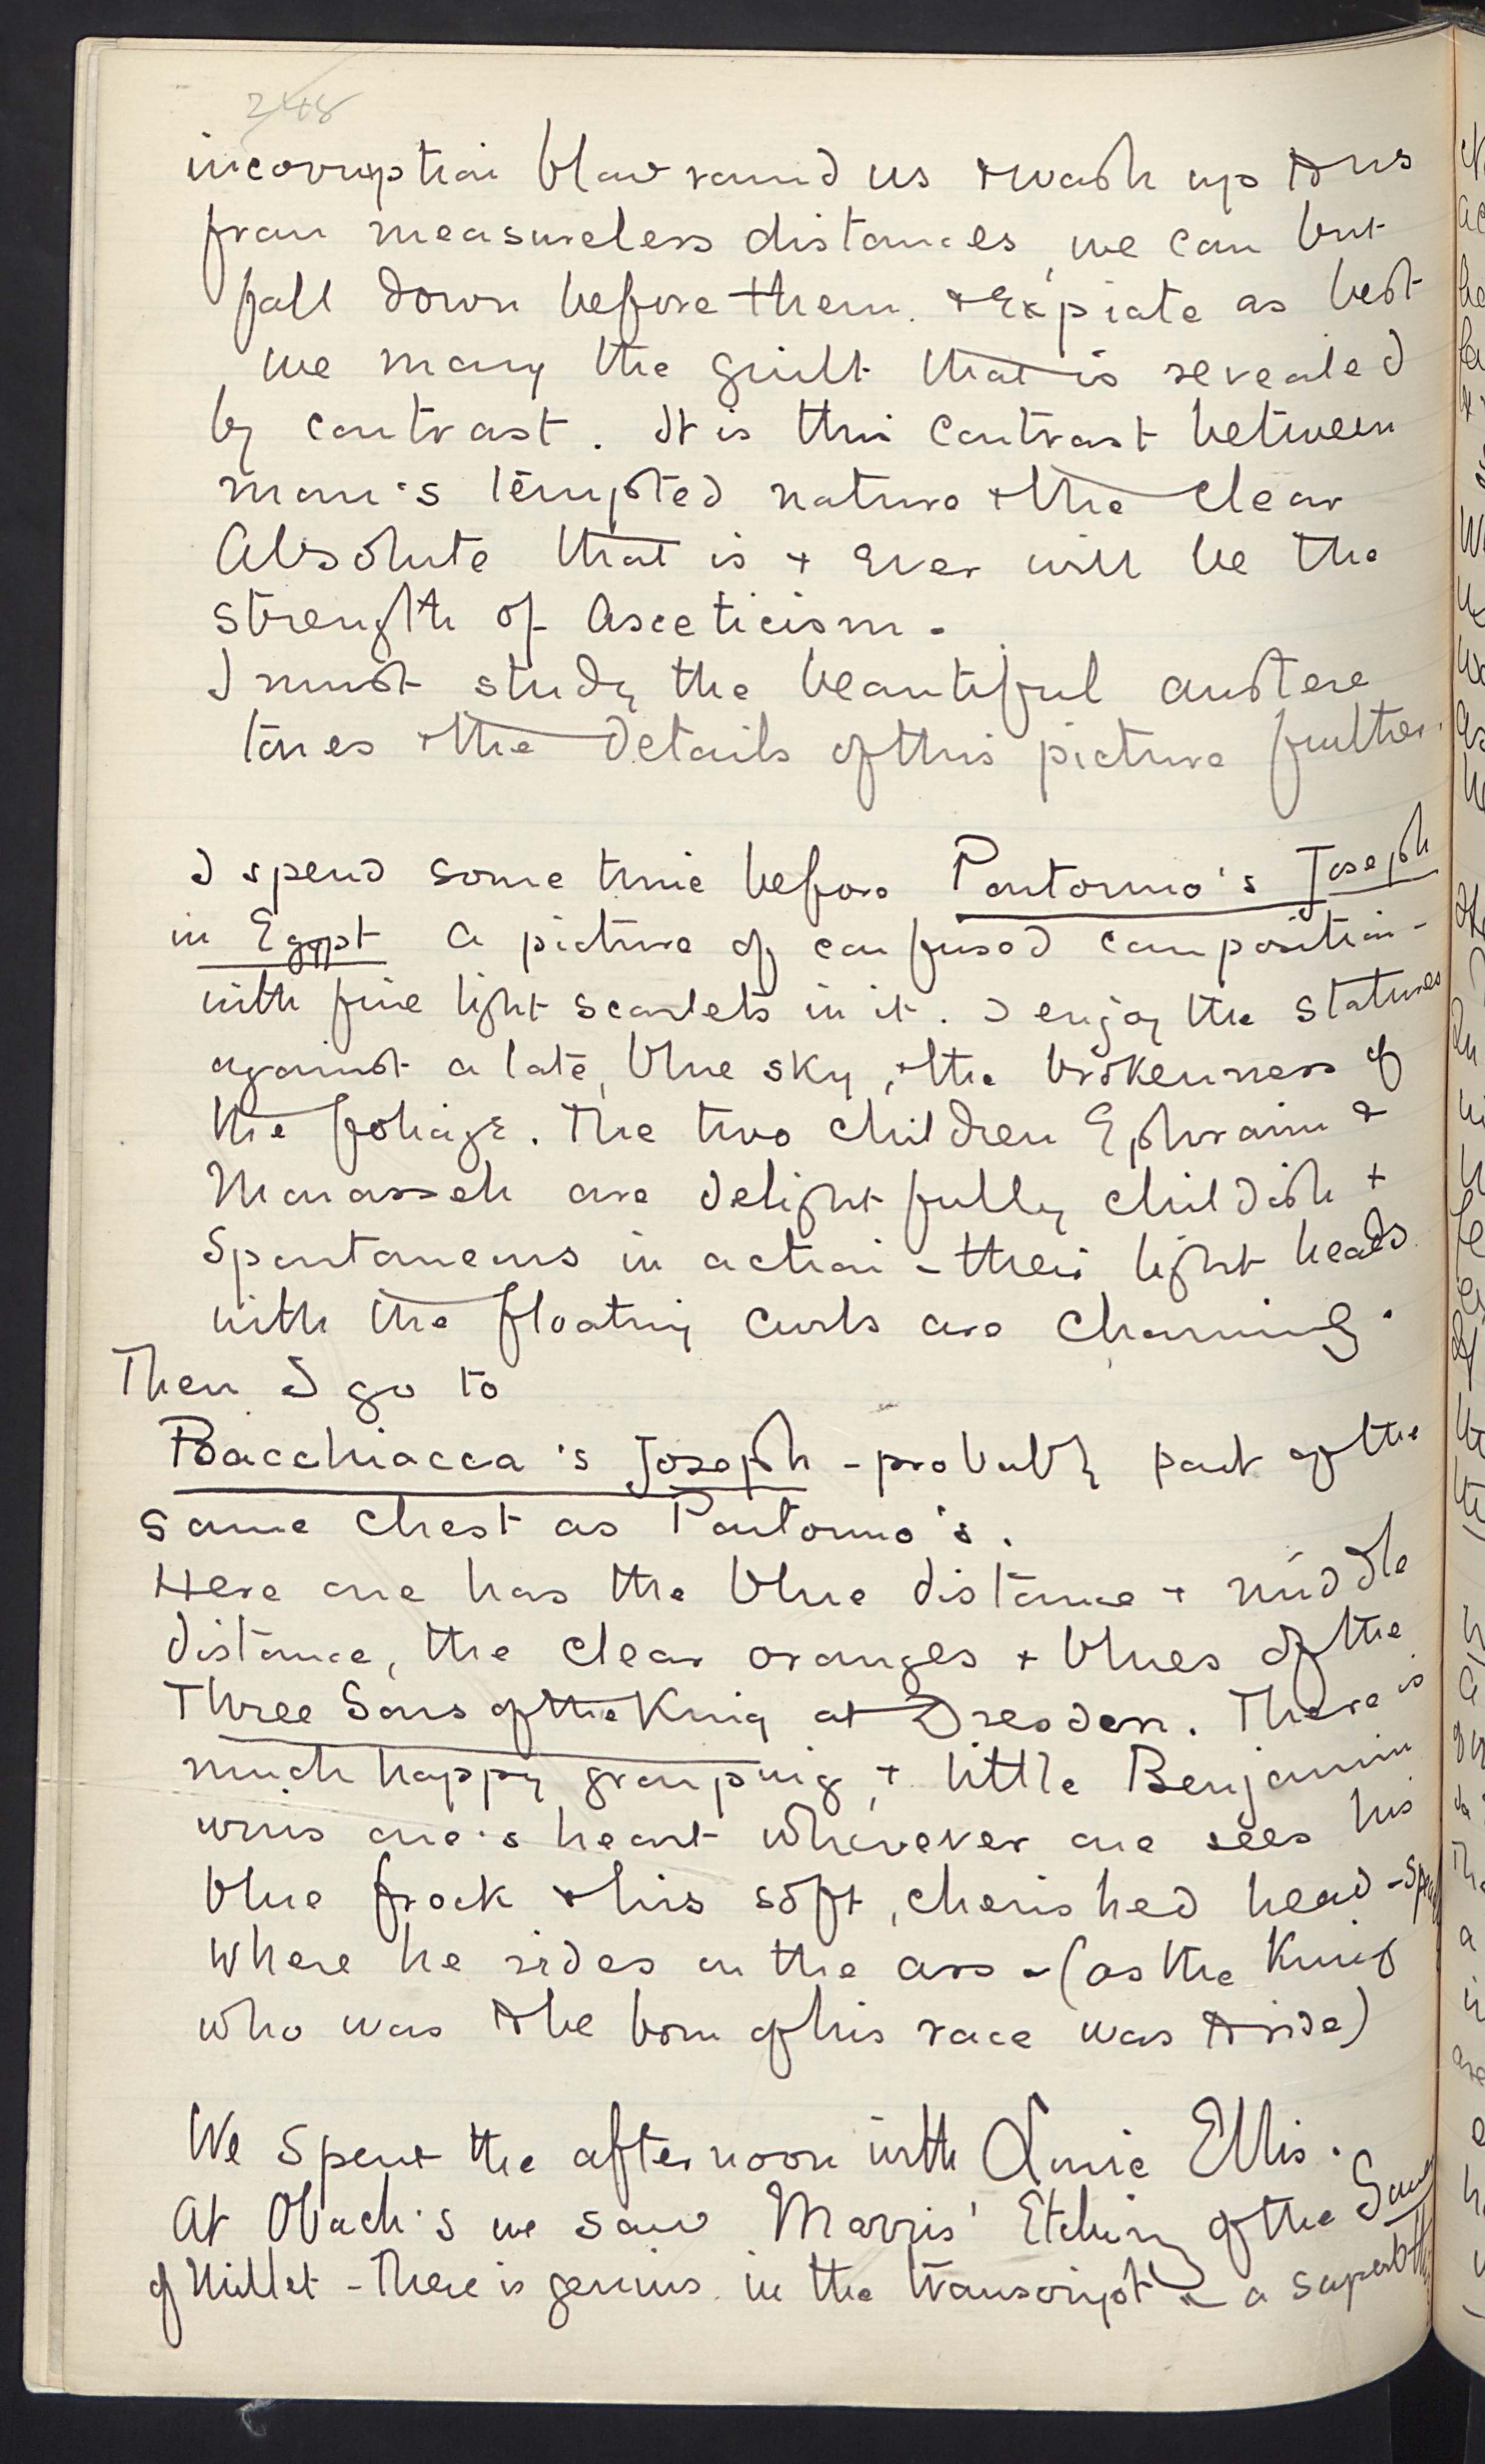 248
incorruption blow round us & wash up to us
from measureless distances, we can but
fall down before them. & expiate as best
we may the guilt that is revealed
by contrast. It is this contrast between
man's tempted nature & the clear
Absolute that is & ever will be the
strength of asceticism.
I must study the beautiful austere
tones & the details of this picture further.
I spend some time before Pontormo's Joseph
in Egypt a picture of confused composition -
with fine light scarlets in it. I enjoy the statues
against a late, blue sky, & the brokenness of
the foliage. The two children Ephraim &
Manasseh are delightfully childish &
spontaneous in action - their light heads
with the floating curls are charming.
Then I go to
Bacchiacca's Joseph - probably part of the
same chest as Pontormo's.
Here one has the blue distance & middle
distance, the clear oranges & blues of the
Three Sons of the King at Dresden. There is
much happy grouping, & little Benjamin
wins one's heart wherever one sees his
blue frock & his soft, cherished head -
where he rides on the ass - (as the King
who was to be born of his race was to ride)
We spent the afternoon with Amie Ellis.
At Obach's we saw Marris' Etching of the Sower
of Millet - There is genius in the transcript - a superb